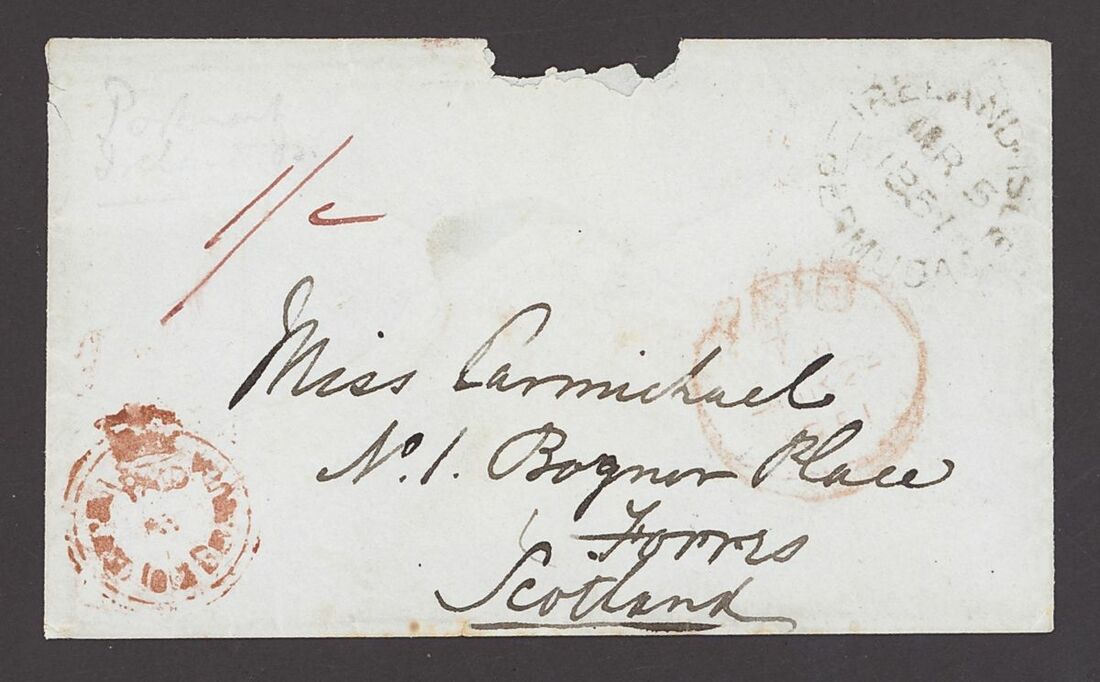 IRELAND ISLE
MR 5
1861
BERMUDA
PAID
1/-
Miss Carmichael
No. 1. Bognor Place
Forres
Scotland